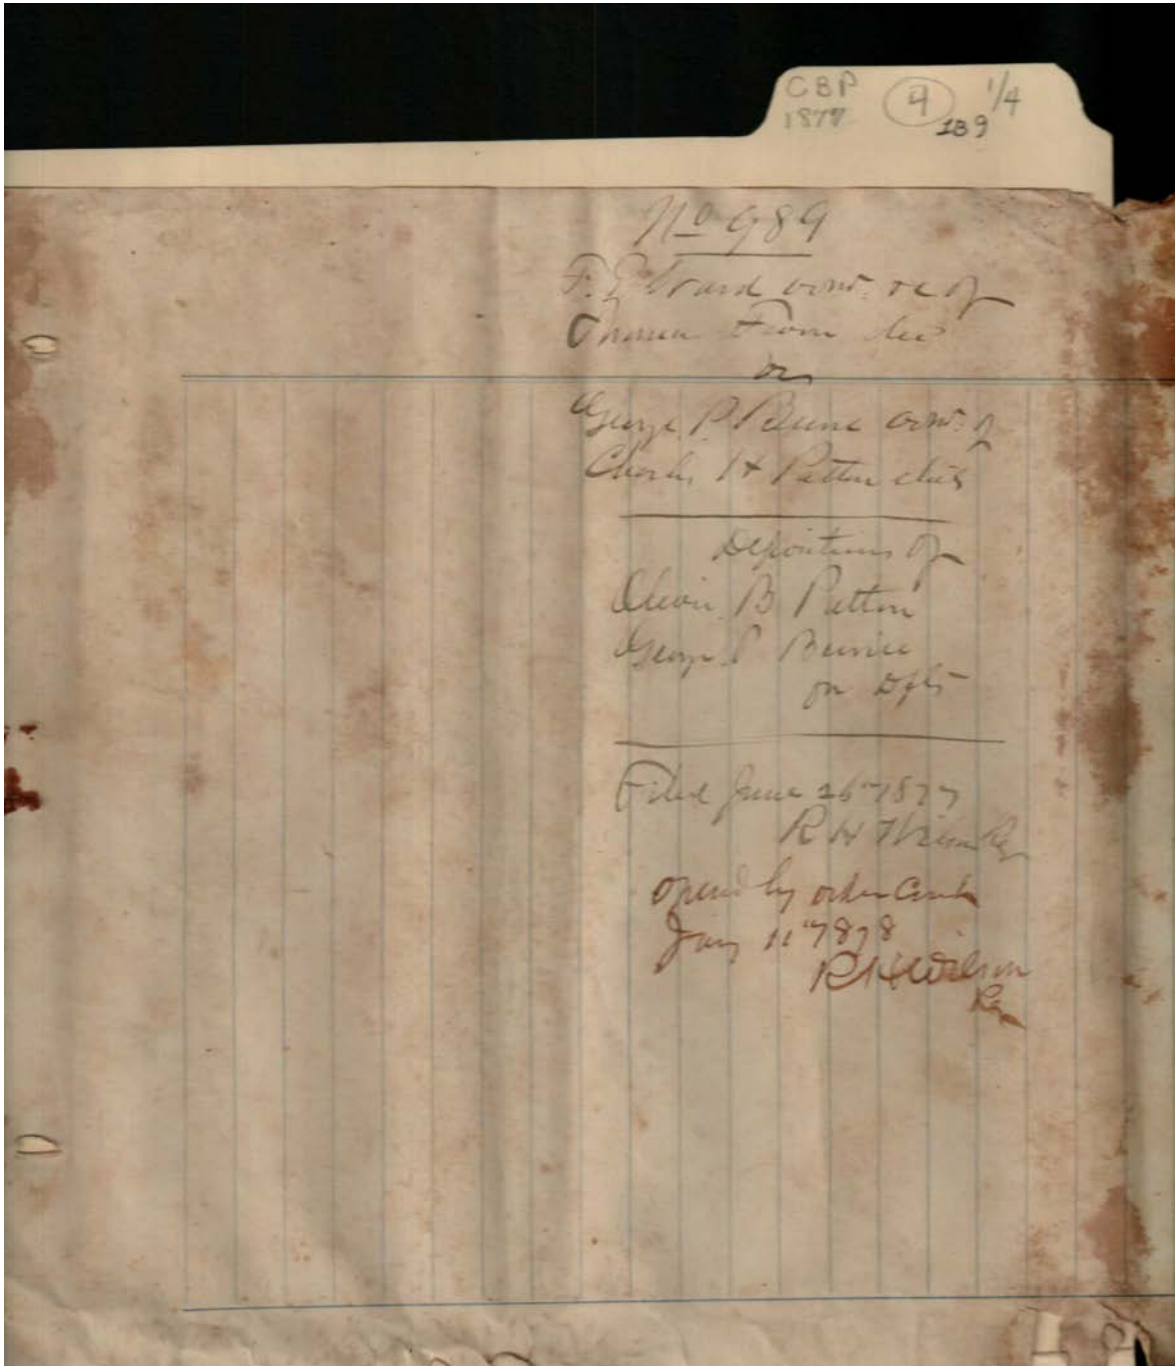 CBP 4 1/4
1877 189
No 989
F. E. Ward admr. &c of
Thomas
vs
George P. Beirne admr. of
Charles H Patton decd
Depositions of
Oliver B Patton
George P Beirne
for Dfts
Filed June 26" 1877
R H Wilson Reg
opened by order Court
Jany 11" 1878
R H Wilson
Reg